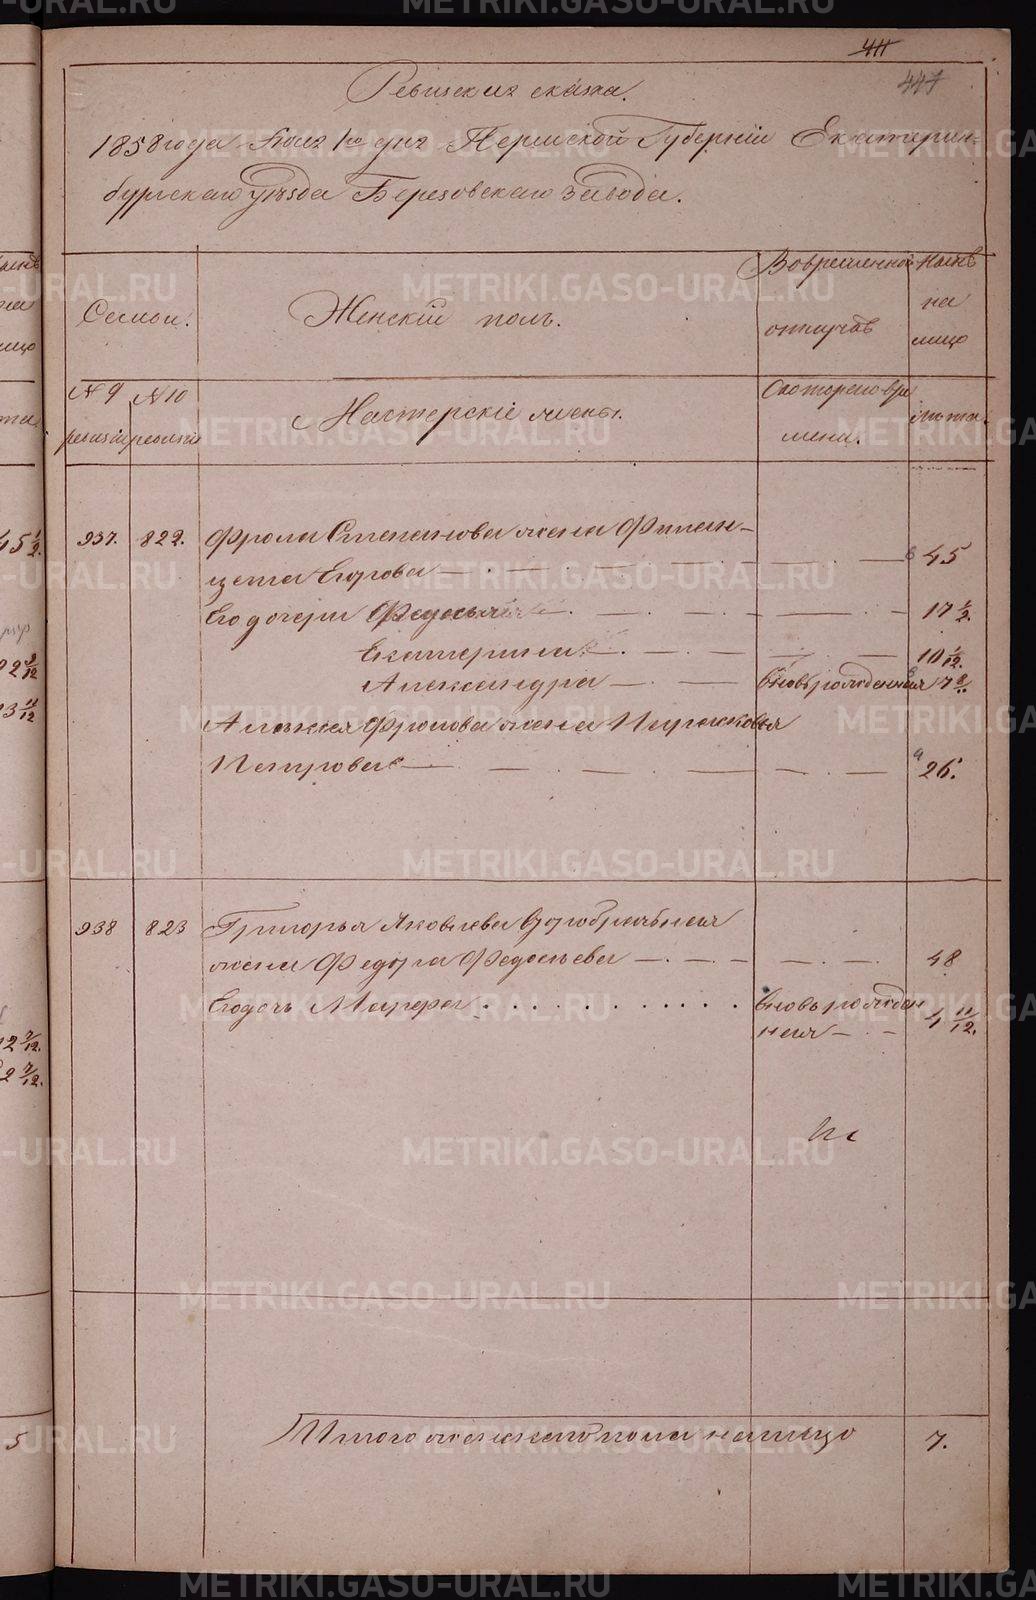 411
447
Ревизская сказка.
1858 года Мая 1го дня Пермской Губерніи Екатерин-
бургскаго уѣзда Березовскаго Завода.
Семьи.
Женскій полъ.
Во временной
отлучкѣ
Нынѣ
на
лицо
№ 9
ревизіи
№ 10
ревизіи
Мастерскіе жены.
Съ котораго вре
мени.
лѣта.
937.
822.
Фрола Степанова жена
Егорова
45
Его дочери Федосья
17 1/2.
Екатерина
10
Александра
вновь рожденная
7
Алексея Фролова жена Парасковья
Петровна
26.
938
823
Григорья Яковлева
жена Федора Федосьева
48
Его дочь Марфа
вновь рожден
ная
4 11/12
Итого женскаго пола на лицо
7.
METRIKI.GASO-URAL.RU